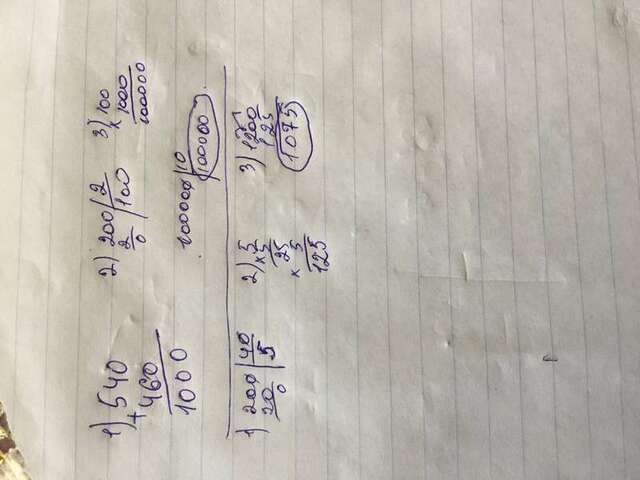 1) 540
+ 460
1000
2) 200 | 2
2 | 100
0
3) 100
x 1000
100000
100000 | 10
100000
1) 200 | 40
20 | 5
0
2) 5
x 5
25
x 5
125
3) 1200
125
1075